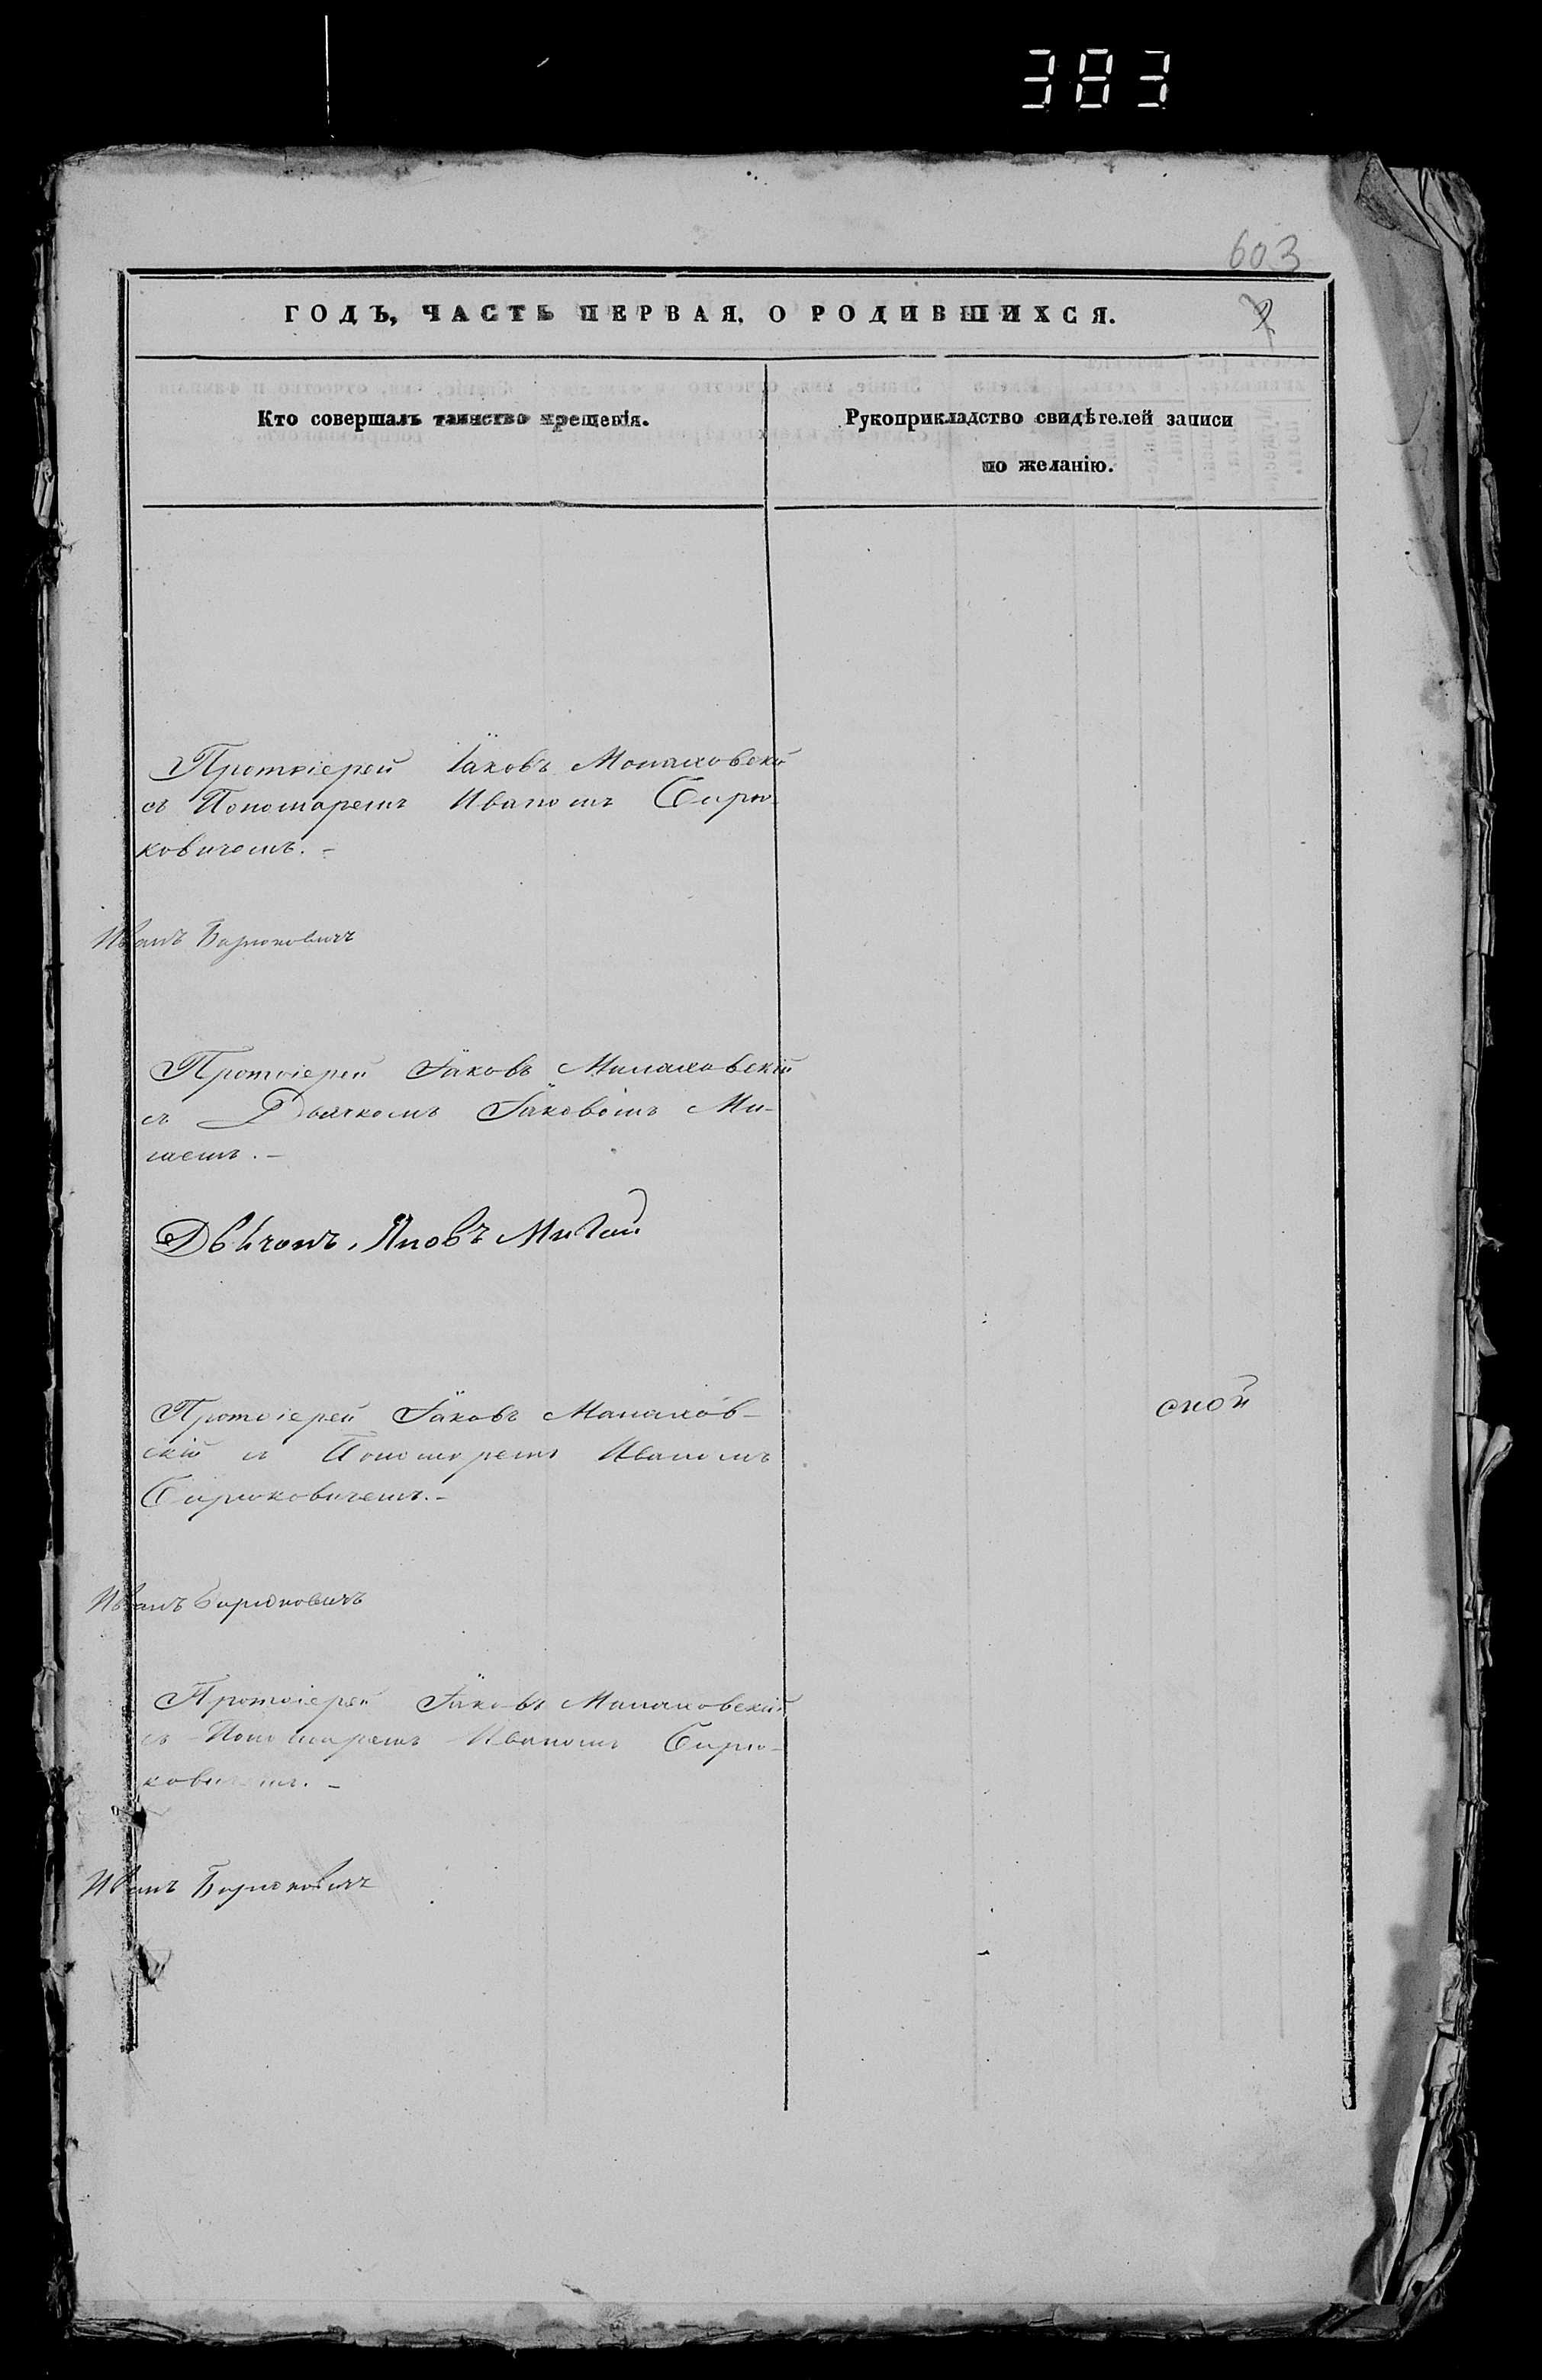 383
603
2
ГОДЪ, ЧАСТЬ ПЕРВАЯ, О РОДИВШИХСЯ.
Кто совершалъ таинство крещенія.
Рукоприкладство свидѣтелей записи
по желанію.
Протоіерей Іаковъ Монаховскій
съ Пономаремъ Иваномъ Бирю-
ковичемъ. -
Иванъ Бирюковичъ
Протоіерей Іаковъ Монаховскій
съ Дьячкомъ Іаковомъ Ми-
гаемъ. -
Дьячокъ, Яковъ Мигай
Протоіерей Іаковъ Монахов-
скій съ Пономаремъ Иваномъ
Бирюковичемъ. -
ской
Иванъ Бирюковичъ
Протоіерей Іаковъ Монаховскій
съ Пономаремъ Иваномъ Бирю-
ковичемъ. -
Иванъ Бирюковичъ